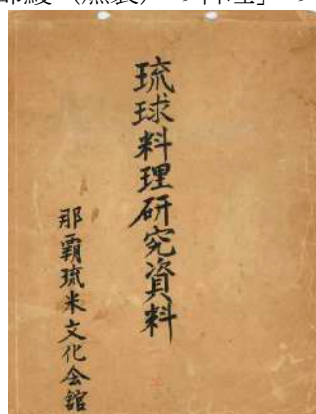 琉球料理研究資料
那覇琉米文化会館